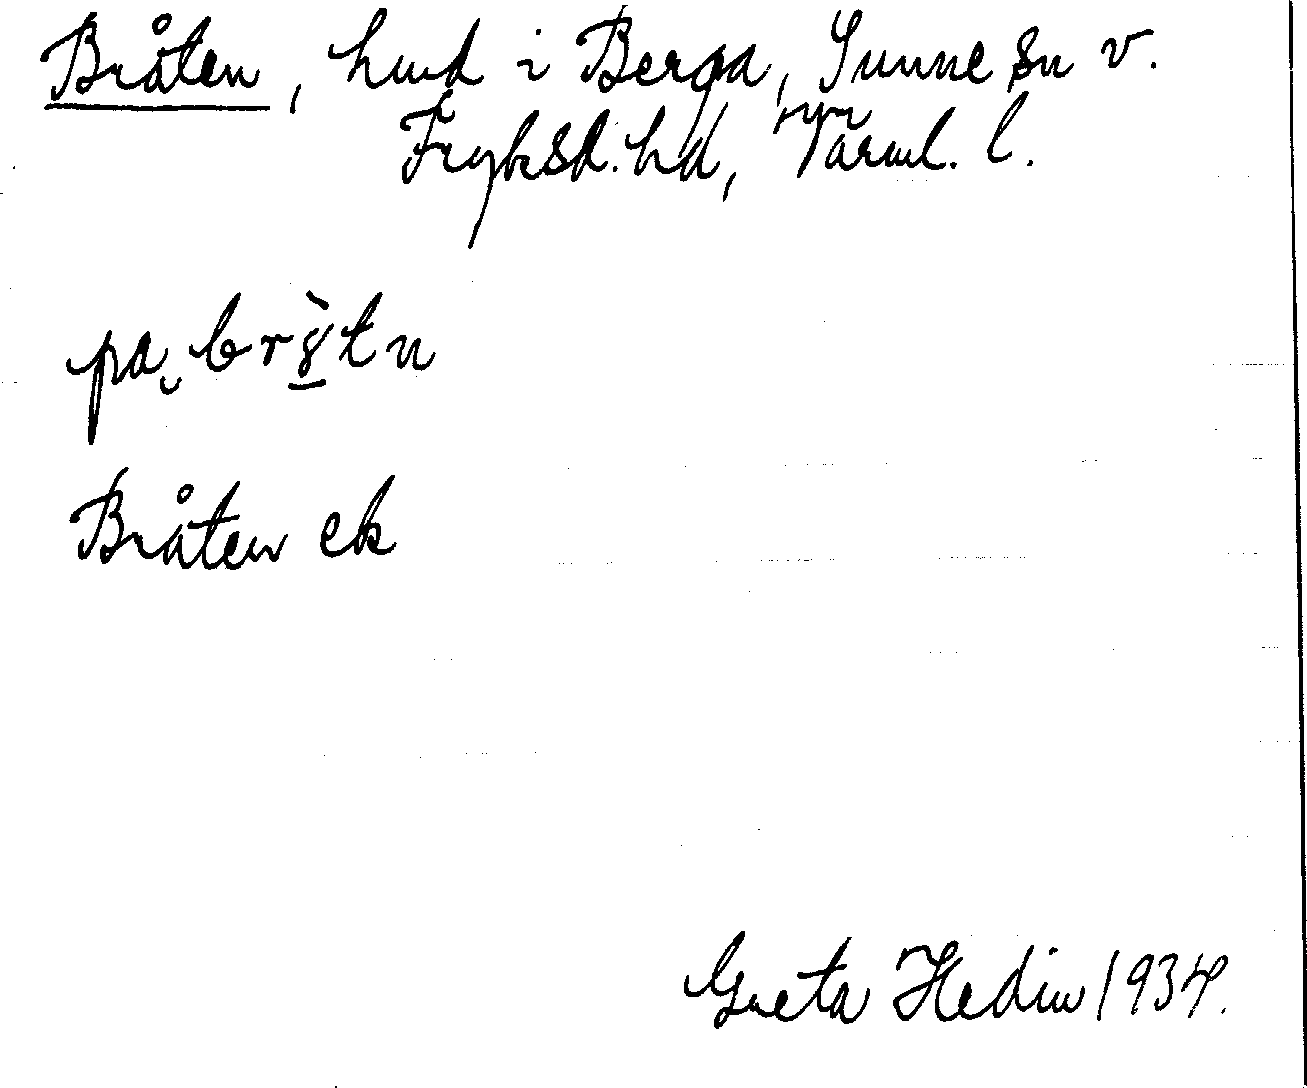 Bråten, hmd i Berga, Sunne sn v.
Fryksd. hd, Värml. l.
pa̮ brɤ̠̀tn
Bråten ek
Greta Hedin 1934.